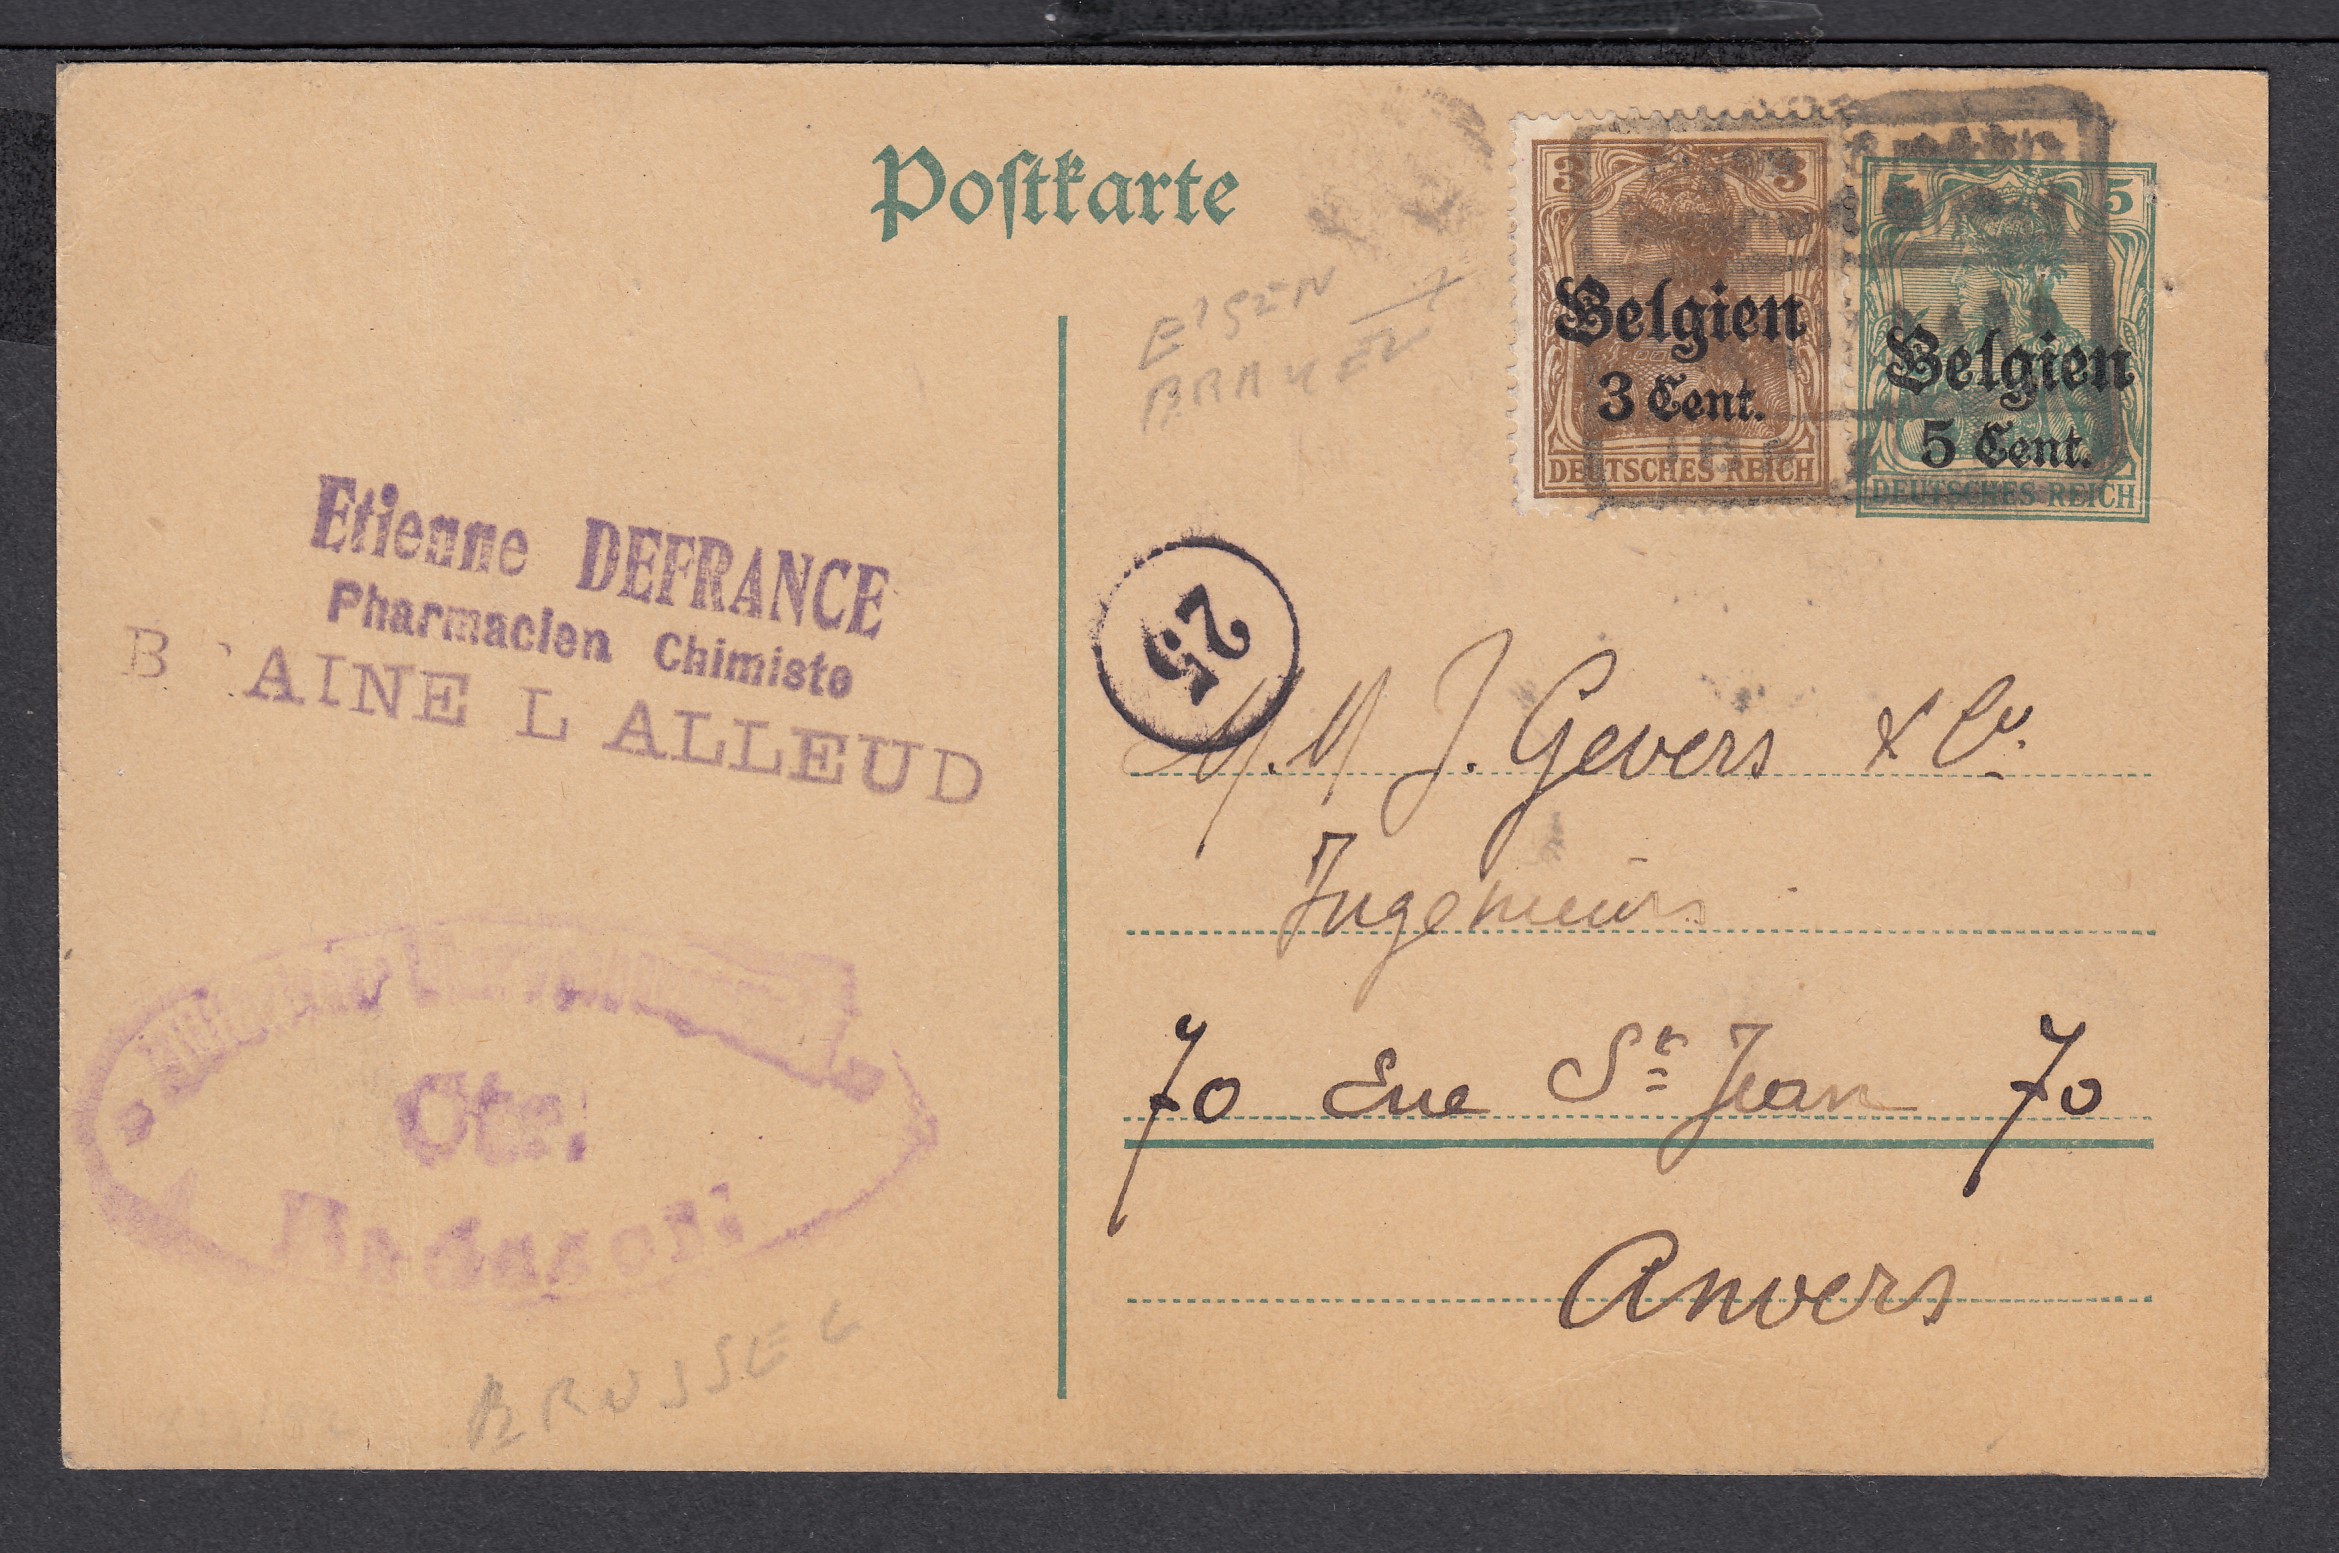 Postkarte
EISEN
BRAKEL
3 3
Belgien
3 Cent.
DEUTSCHES REICH
5 5
Belgien
5 Cent.
DEUTSCHES REICH
Etienne DEFRANCE
Pharmacien Chimiste
B AINE L ALLEUD
25
M.M J. Gevers & Co.
Ingenieurs
70 Rue St Jean 70
Anvers
BRUSSEL